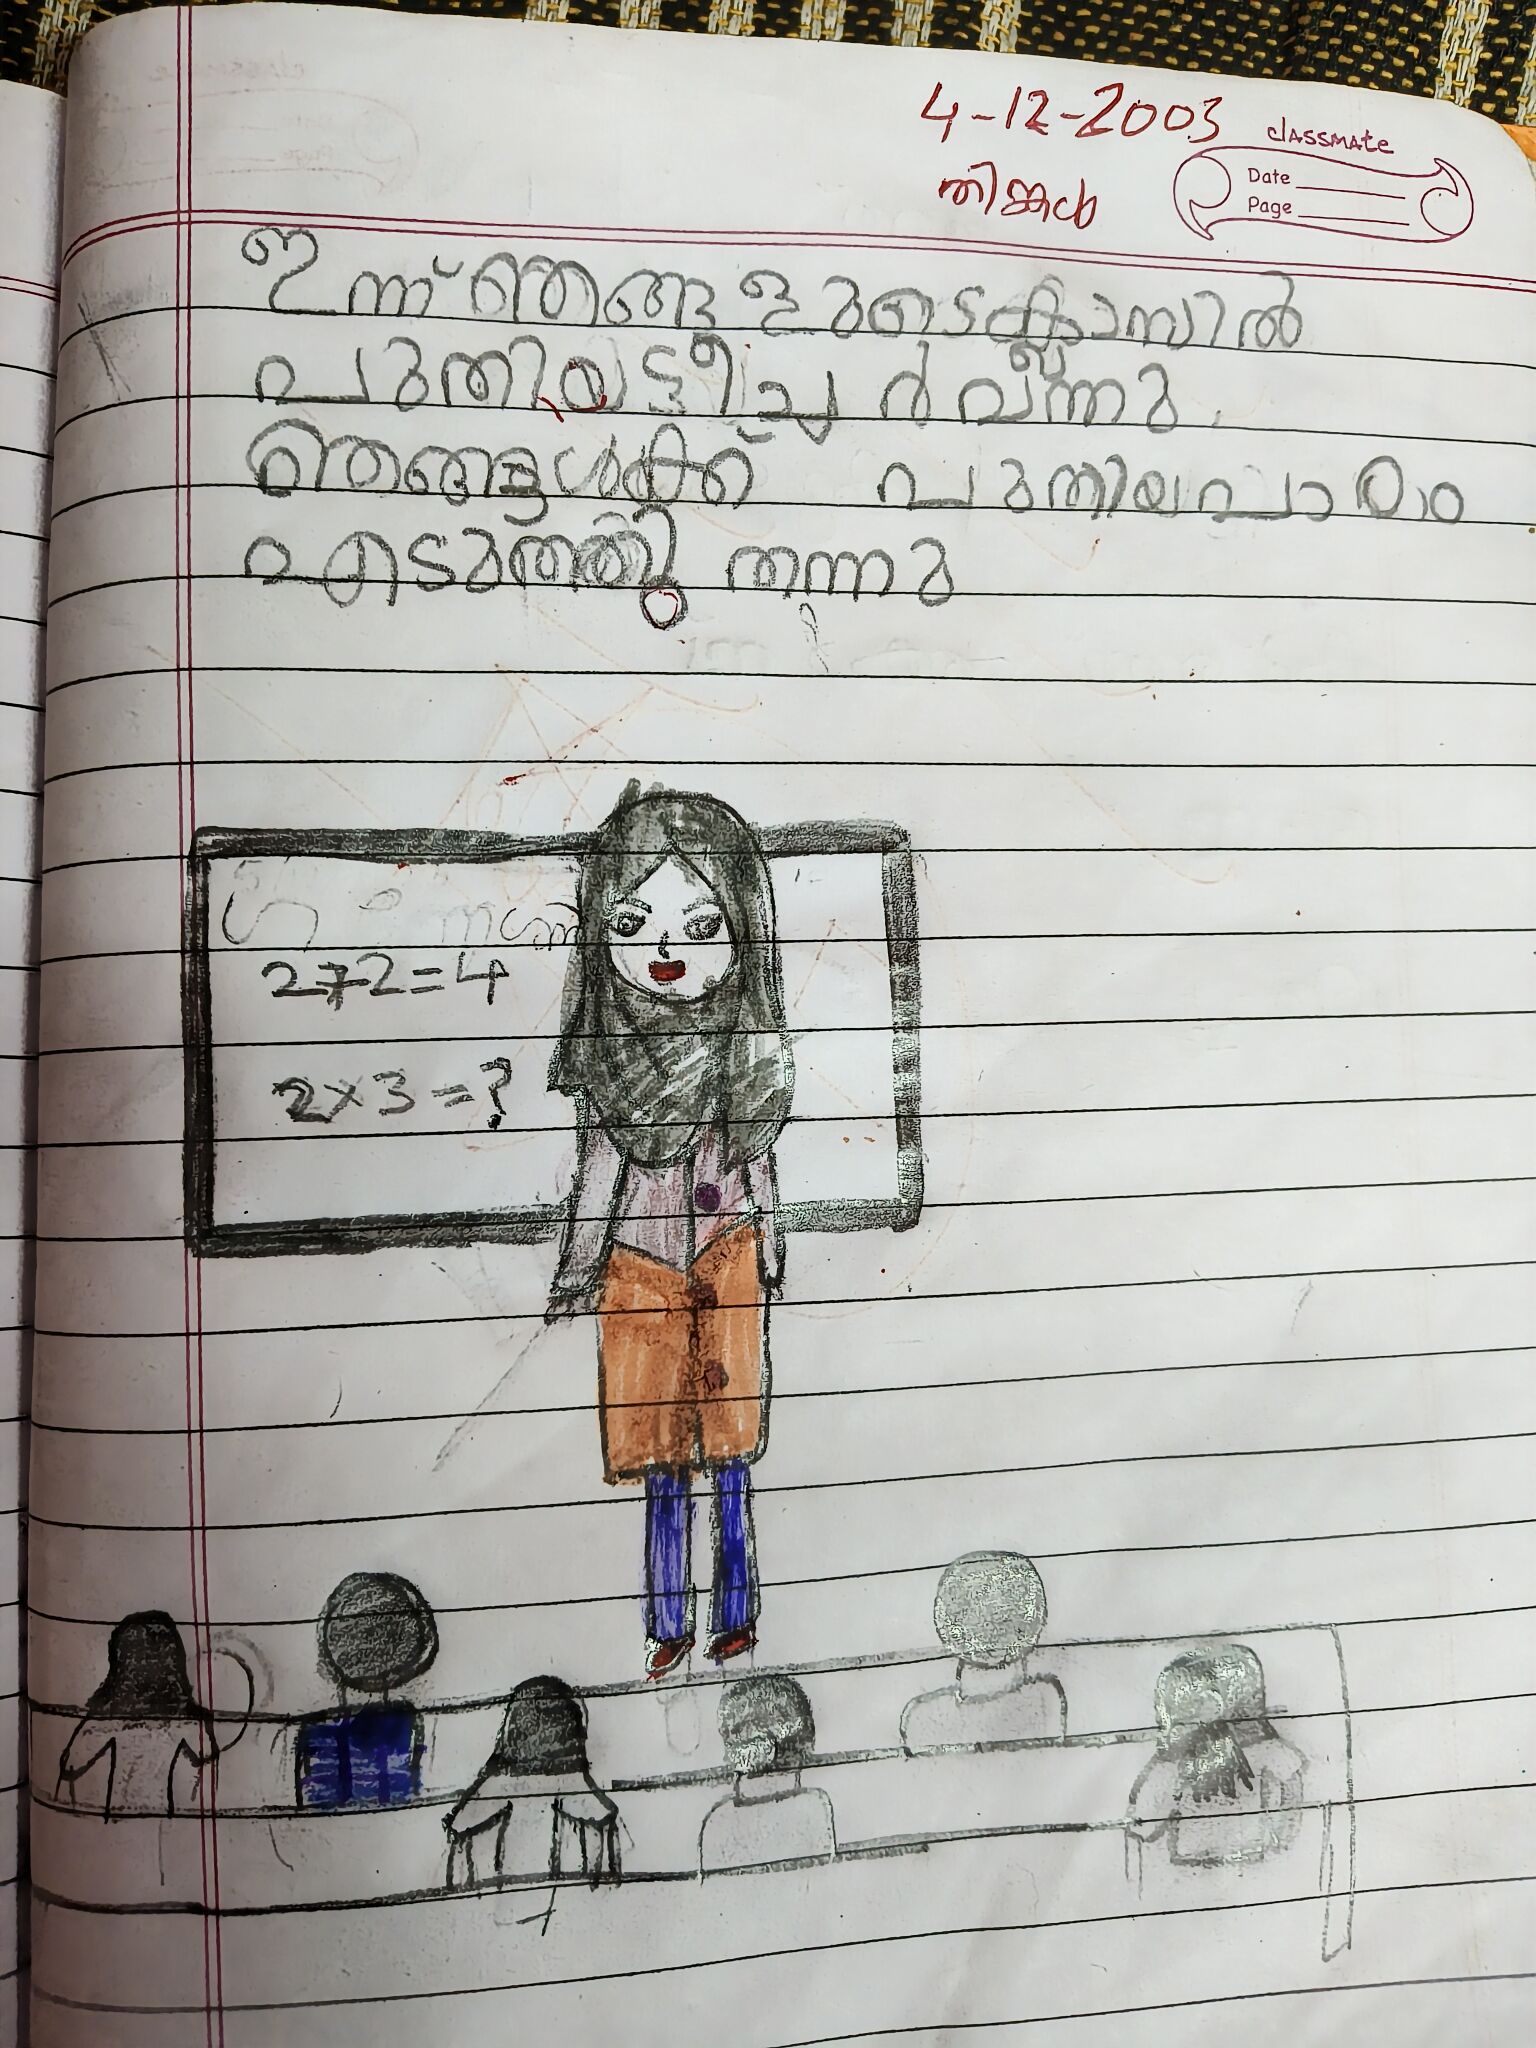 4-12-2003
classmate
തിങ്കൾ
Date
Page
ഇന്ന് ഞങ്ങളുടെ ക്ലാസിൽ
പുതിയ ടീച്ചർ വന്നു.
ഞങ്ങൾക്ക് പുതിയ പാഠം
എടുത്തു തന്നു
2+2=4
2×3=?